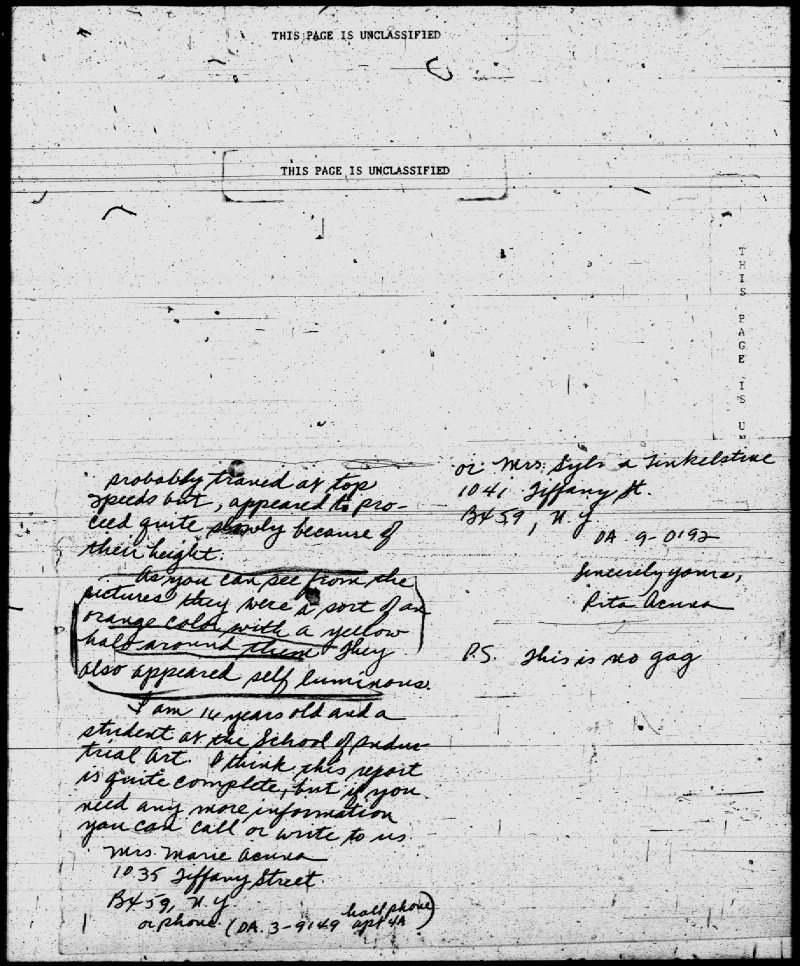 THIS PAGE IS UNCLASSIFIED
THIS PAGE IS UNCLASSIFIED
THIS PAGE IS UN
probably traved at top
speeds but, appeared to pro-
ceed quite slowly because of
their height.
As you can see from the
pictures they were a sort of an
orange color with a yellow
halo around them. They
also appeared self luminous.
I am 14 years old and a
student at the School of Indus-
trial Art. I think this report
is quite complete, but if you
need any more information
you can call or write to us
Mrs. Marie Acuna
1035 Tiffany Street
BX 59, N.Y.
or phone (DA. 3-9149 hall phone apt 4A)
or Mrs. a Finkelstine
1041 Tiffany St.
BX 59, N.Y.
DA 9-0192
Sincerely yours,
Rita Acuna
P.S. This is no gag